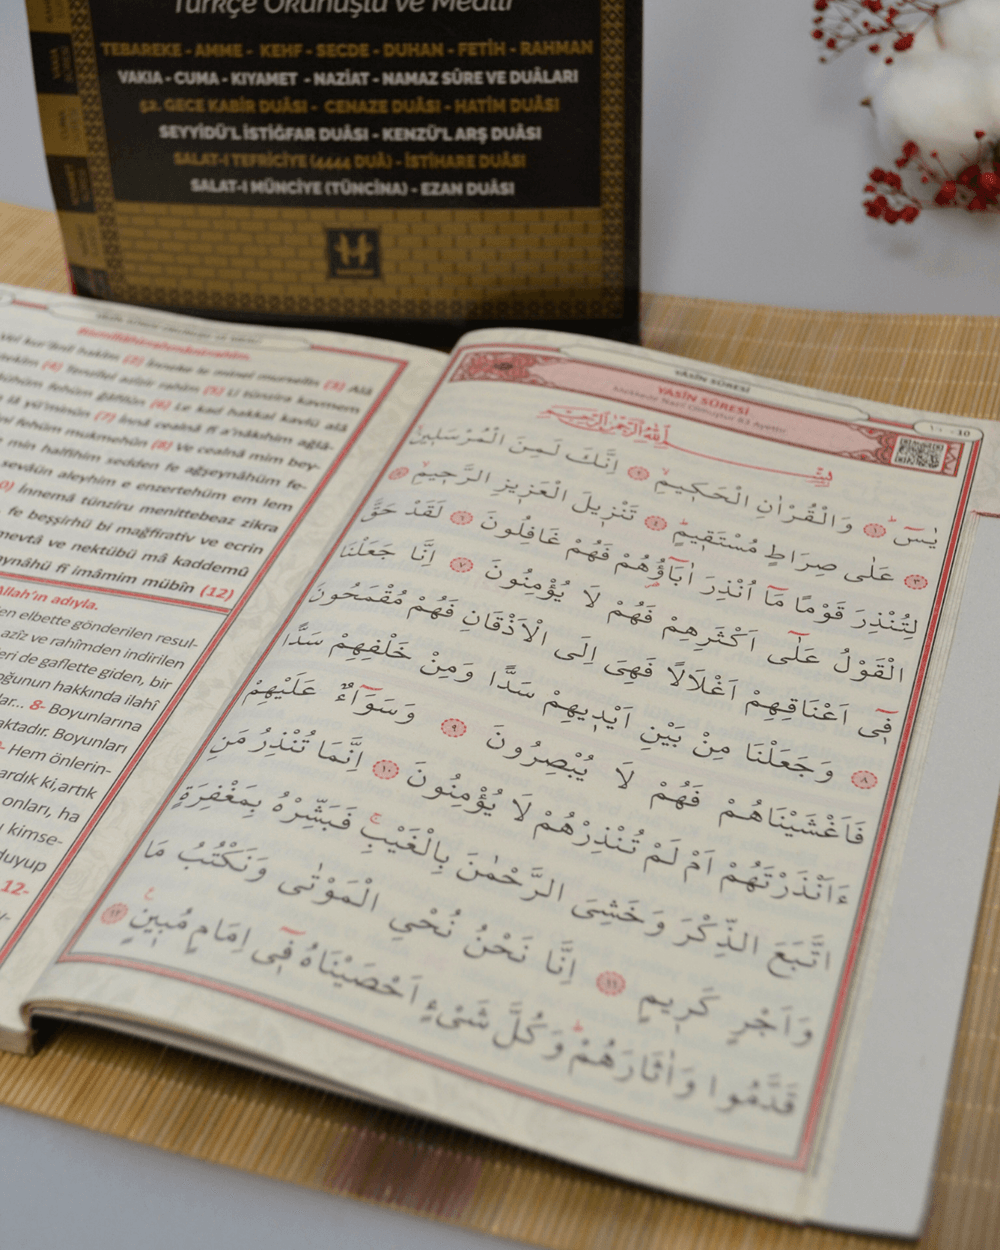 Türkçe Okunuşlu ve Meâlli
TEBAREKE - AMME - KEHF - SECDE - DUHAN - FETİH - RAHMAN
VAKIA - CUMA - KIYAMET - NAZİAT - NAMAZ SÛRE VE DUÂLARI
52. GECE KABİR DUÂSI - CENAZE DUÂSI - HATİM DUÂSI
SEYYİDÜ'L İSTİĞFAR DUÂSI - KENZÜ'L ARŞ DUÂSI
SALAT-I TEFRİCİYE (4444 DUÂ) - İSTİHARE DUÂSI
SALAT-I MÜNCİYE (TÜNCİNA) - EZAN DUÂSI
Bismillâhirrahmânirrahîm.
Vel kur'ânil hakîm (2) İnneke le minel murselîn (3) Alâ
(4) Tenzîlel azîzir rahîm (5) Li tünzira kavmem
fehüm gâfilûn (6) Le kad hakkal kavlü alâ
lâ yü'minûn (7) İnnâ cealnâ fî a'nâkıhim ağlâ-
fehüm mukmehûn (8) Ve cealnâ mim bey-
min halfihim sedden fe ağşeynâhüm fe-
sevâün aleyhim e enzertehüm em lem
İnnemâ tünziru menittebeaz zikra
fe beşşirhü bi mağfirativ ve ecrin
mevtâ ve nektübü mâ kaddemû
fî imâmim mübîn (12)
Allah'ın adıyla.
elbette gönderilen resul-
azîz ve rahîmden indirilen
de gaflette giden, bir
çoğunun hakkında ilahî
8- Boyunlarına
Boyunları
Hem önlerin-
ki,artık
onları, ha
kimse-
duyup
12-
YÂSÎN SÛRESİ
١٠ - 10
YASİN SÛRESİ
Mekkede Nazil Olmuştur 83 Ayettir.
بِسْمِ اللّٰهِ الرَّحْمٰنِ الرَّحِيمِ
يٰسٓ ﴿١﴾ وَالْقُرْاٰنِ الْحَكِيمِ ﴿٢﴾ اِنَّكَ لَمِنَ الْمُرْسَلِينَ
﴿٣﴾ عَلٰى صِرَاطٍ مُسْتَقِيمٍ ﴿٤﴾ تَنْزِيلَ الْعَزِيزِ الرَّحِيمِ ﴿٥﴾
لِتُنْذِرَ قَوْمًا مَٓا اُنْذِرَ اٰبَٓاؤُ۬هُمْ فَهُمْ غَافِلُونَ ﴿٦﴾ لَقَدْ حَقَّ
الْقَوْلُ عَلٰٓى اَكْثَرِهِمْ فَهُمْ لَا يُؤْمِنُونَ ﴿٧﴾ اِنَّا جَعَلْنَا
فِٓي اَعْنَاقِهِمْ اَغْلَالًا فَهِيَ اِلَى الْاَذْقَانِ فَهُمْ مُقْمَحُونَ
﴿٨﴾ وَجَعَلْنَا مِنْ بَيْنِ اَيْدِيهِمْ سَدًّا وَمِنْ خَلْفِهِمْ سَدًّا
فَاَغْشَيْنَاهُمْ فَهُمْ لَا يُبْصِرُونَ ﴿٩﴾ وَسَوَٓاءٌ عَلَيْهِمْ
ءَاَنْذَرْتَهُمْ اَمْ لَمْ تُنْذِرْهُمْ لَا يُؤْمِنُونَ ﴿١٠﴾ اِنَّمَا تُنْذِرُ مَنِ
اتَّبَعَ الذِّكْرَ وَخَشِيَ الرَّحْمٰنَ بِالْغَيْبِ فَبَشِّرْهُ بِمَغْفِرَةٍ
وَاَجْرٍ كَرِيمٍ ﴿١١﴾ اِنَّا نَحْنُ نُحْيِ الْمَوْتٰى وَنَكْتُبُ مَا
قَدَّمُوا وَاٰثَارَهُمْ وَكُلَّ شَيْءٍ اَحْصَيْنَاهُ فِٓي اِمَامٍ مُبِينٍ ﴿١٢﴾